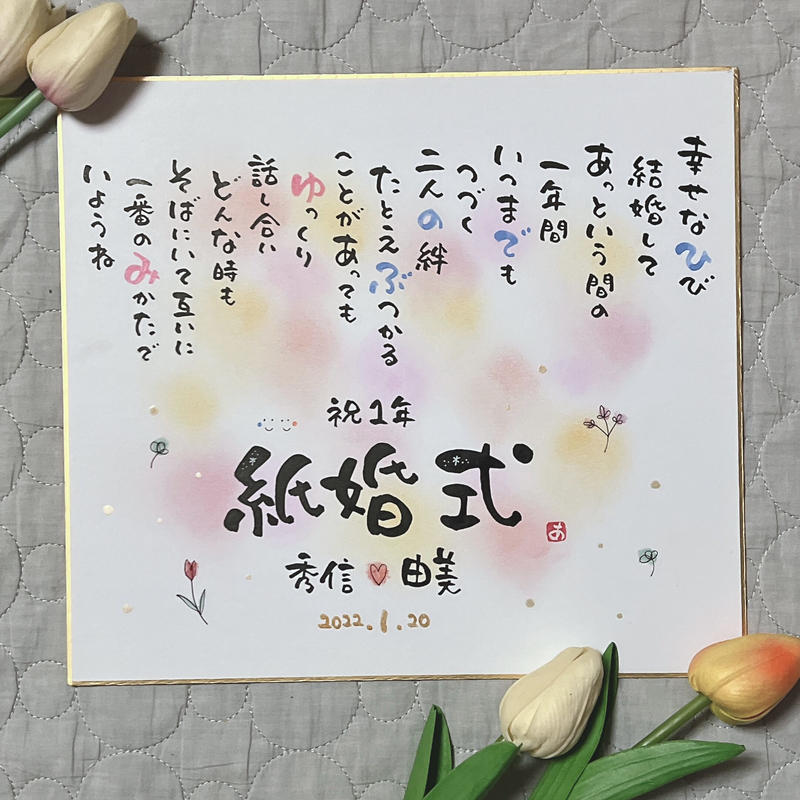 幸せなひび
結婚して
あっという間の
一年間
いつまでも
つづく
二人の絆
たとえぶつかる
ことがあっても
ゆっくり
話し合い
どんな時も
そばにいて互いに
一番のみかたで
いようね
祝1年
紙婚式
あ
秀信 由美
2022.1.20